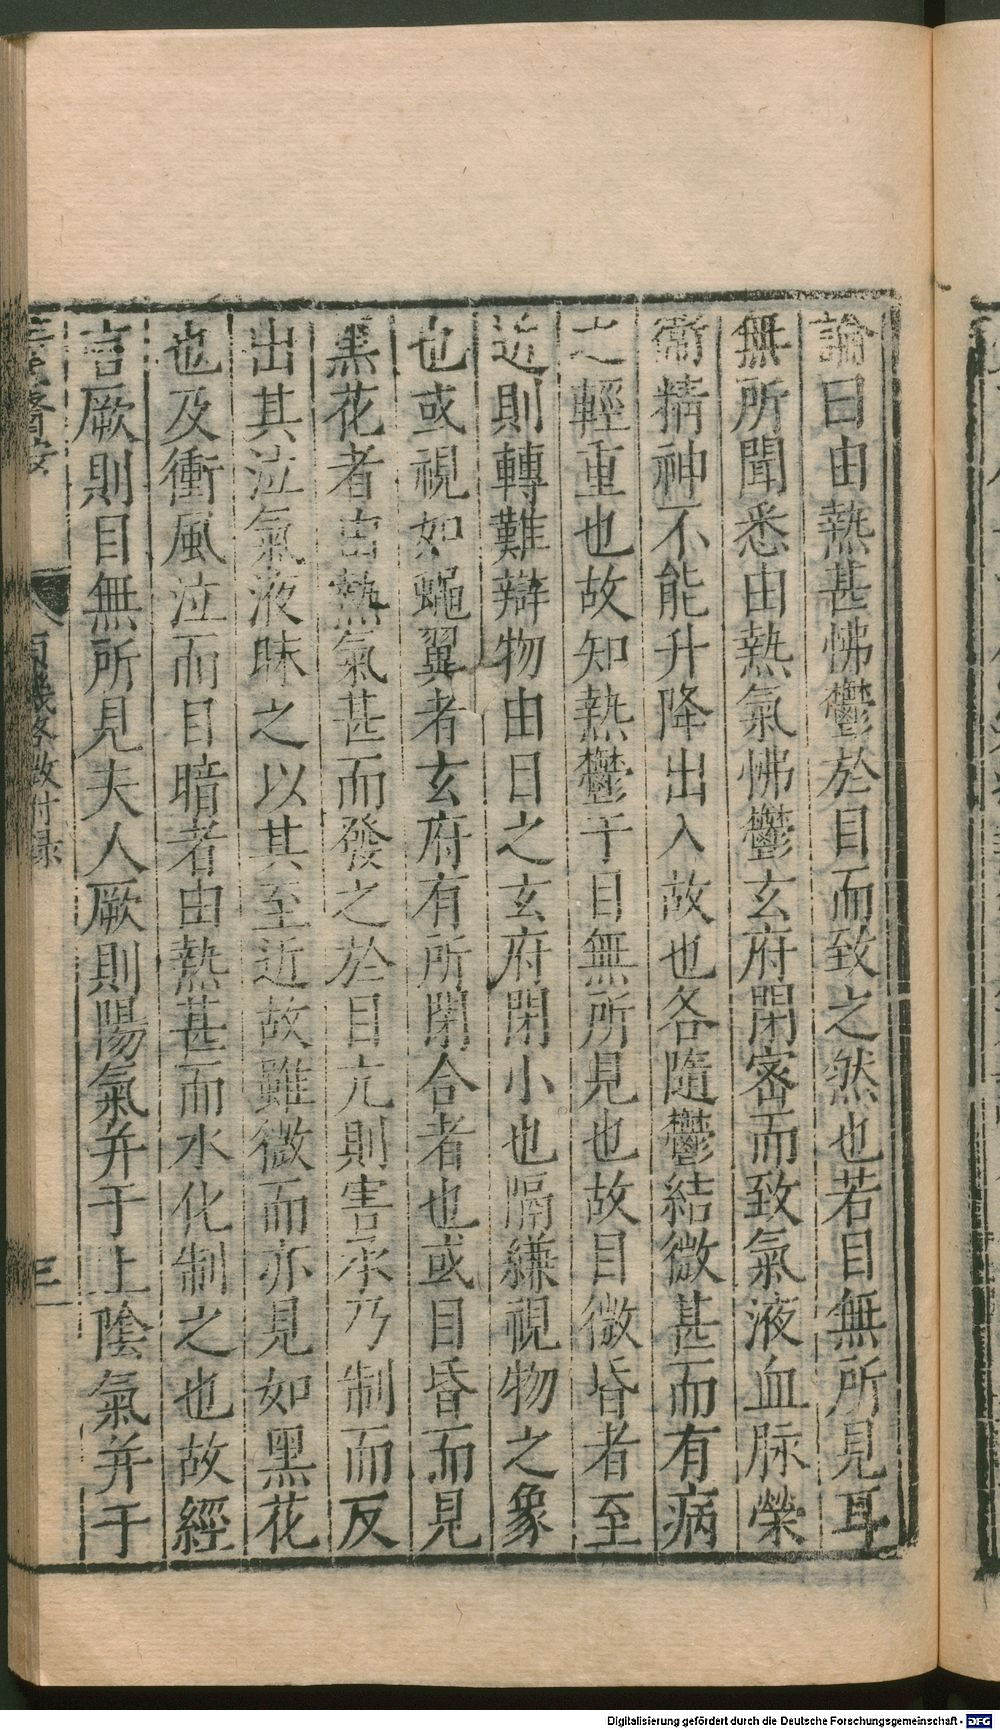 論曰由熱甚怫鬱於目而致之然也若目無所見耳
無所聞悉由熱氣怫鬱玄府閉密而致氣液血脉榮
衛精神不能升降出入故也各隨鬱結微甚而有病
之輕重也故知熱鬱于目無所見也故目微昏者至
近則轉難辯物由目之玄府閉小也隔縑視物之象
也或視如蠅翼者玄府有所閉合者也或目昏而見
黑花者由熱氣甚而發之於目亢則害承乃制而反
出其泣氣液昧之以其至近故雖微而亦見如黑花
也及衝風泣而目暗者由熱甚而水化制之也故經
言厥則目無所見夫人厥則陽氣并于上陰氣并于
附録
三
Digitalisierung gefördert durch die Deutsche Forschungsgemeinschaft - DFG